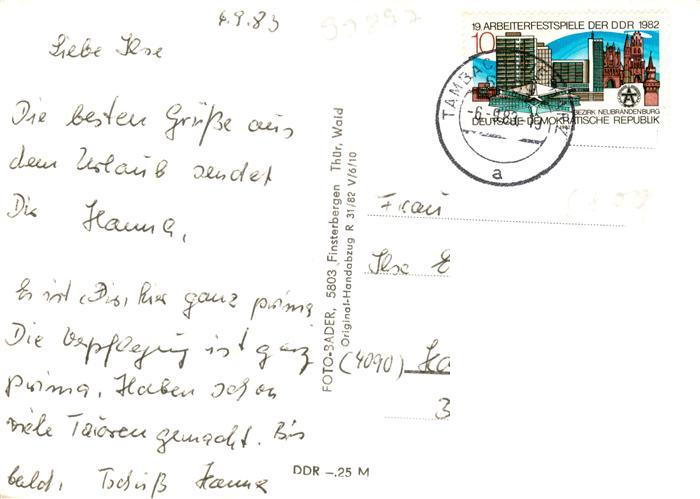 6.9.83
Liebe Ilse
Die besten Grüße aus
dem Urlaub sendet
Dir Hanna,
Es ist hier ganz prima
Die Verpflegung ist ganz
prima. Haben schon
viele Touren gemacht. Bis
bald. Tschüß Hanna
FOTO-BADER, 5803 Finsterbergen Thür, Wald
Original-Handabzug R 31/82 V/6/10
DDR –.25 M
19 ARBEITERFESTSPIELE DER DDR 1982
10
BEZIRK NEUBRANDENBURG
DEUTSCHE DEMOKRATISCHE REPUBLIK
TAMBACH
-6.-9.83
a
Frau
Ilse E
(4090) Ha
3